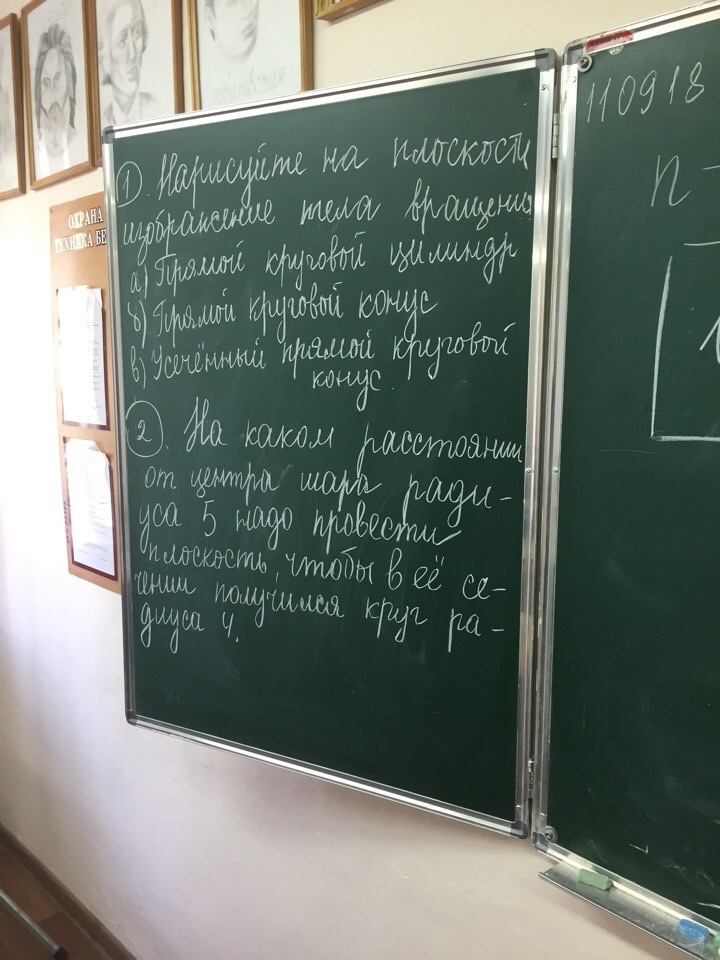 ОХРАНА
ТЕХНИКА БЕ
① Нарисуйте на плоскости
изображение тела вращения
а) Прямой круговой цилиндр
б) Прямой круговой конус
в) Усечённый прямой круговой
конус.
② На каком расстоянии
от центра шара ради-
уса 5 надо провести
плоскость, чтобы в её се-
чении получился круг ра-
диуса 4.
110918
n